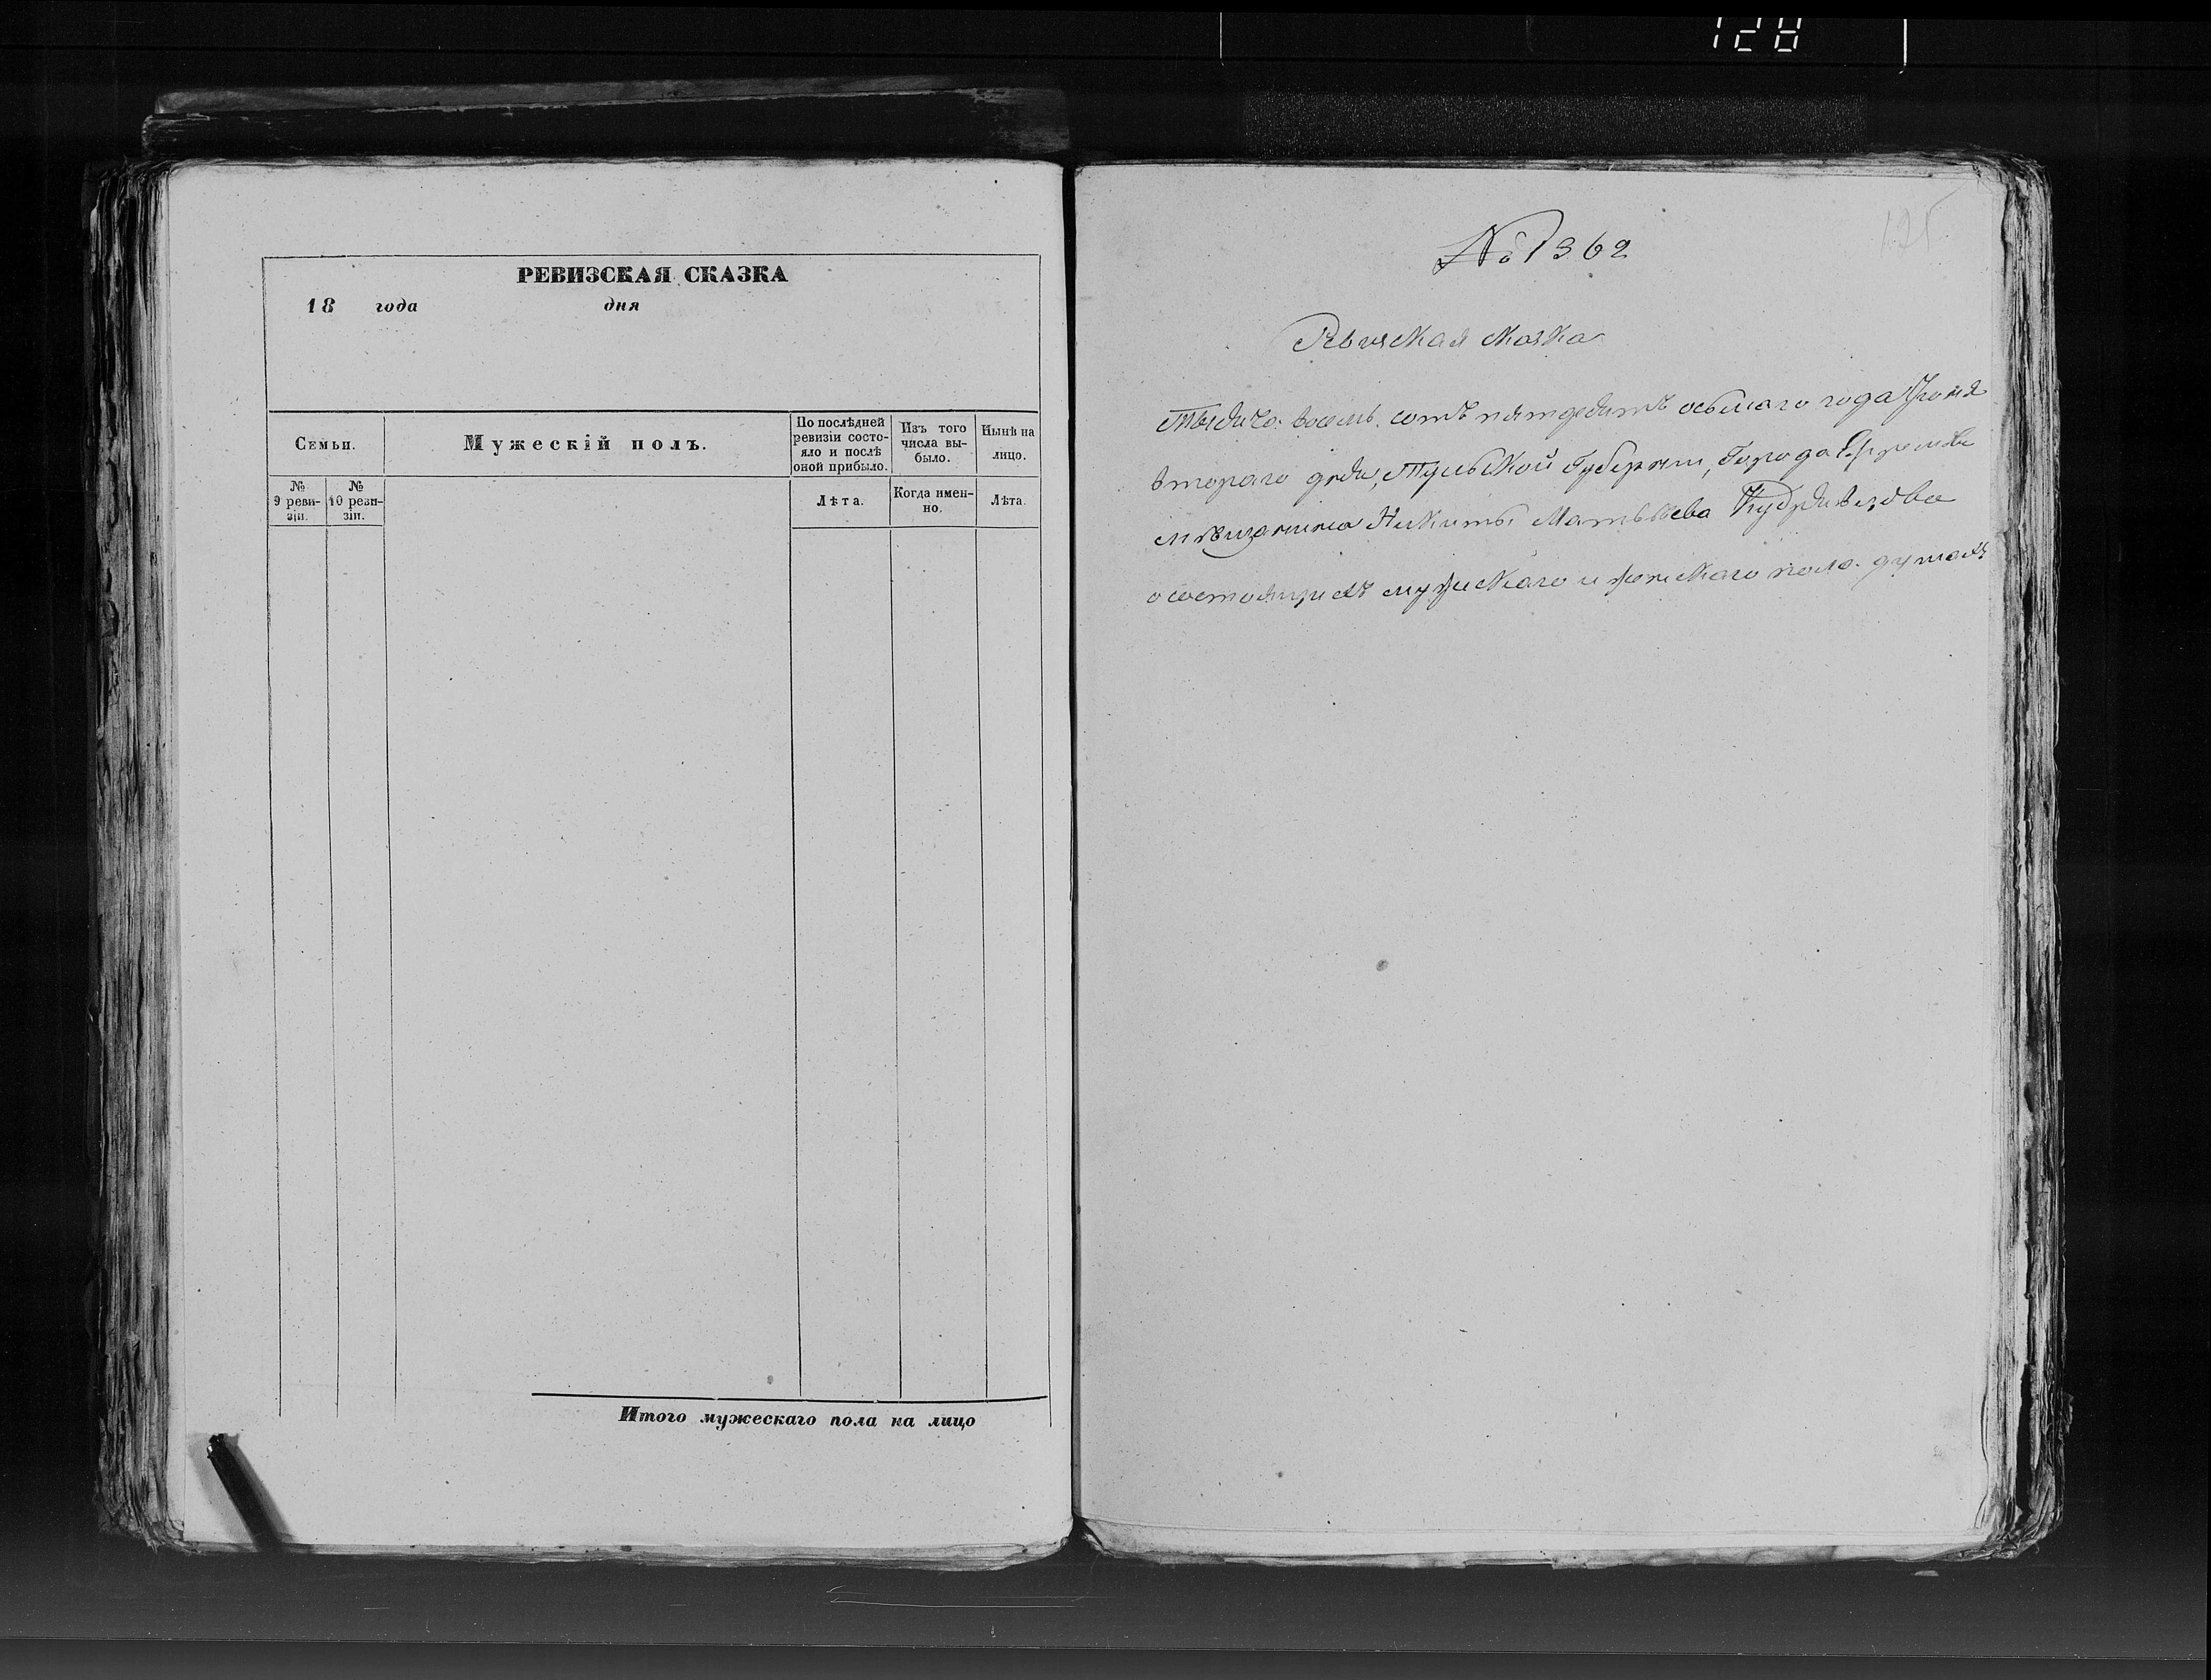 128
РЕВИЗСКАЯ СКАЗКА
18 года дня
Семьи.
Мужескій полъ.
По послѣдней ревизіи состо-
яло и послѣ оной прибыло.
Изъ того числа вы-
было.
Нынѣ на лицо.
№ 9 реви-
зіи.
№ 10 реви-
зіи.
Лѣта.
Когда имен-
но.
Лѣта.
Итого мужескаго пола на лицо
125
№ 1362
Ревизская сказка
Тысеча восемь сотъ пятдесятъ осьмаго года Іюня
втораго дня, Тульской Губернии, Города Ефремова
мѣщанина Никиты Матвѣева
о состоящихъ мужскаго и женскаго пола душахъ